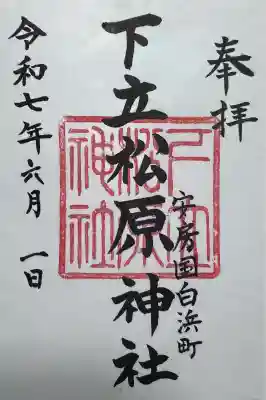 奉拝
安房国白浜町
下立松原神社
令和七年六月一日
下立松原神社